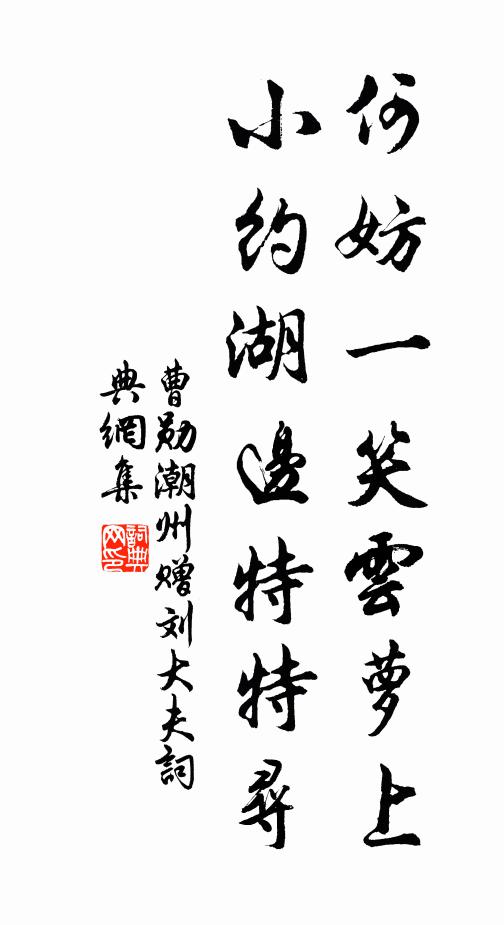 何妨一笑雲夢上
小約湖邊特特尋
曹勛潮州贈刘大夫詞
典網集
詞典
网印